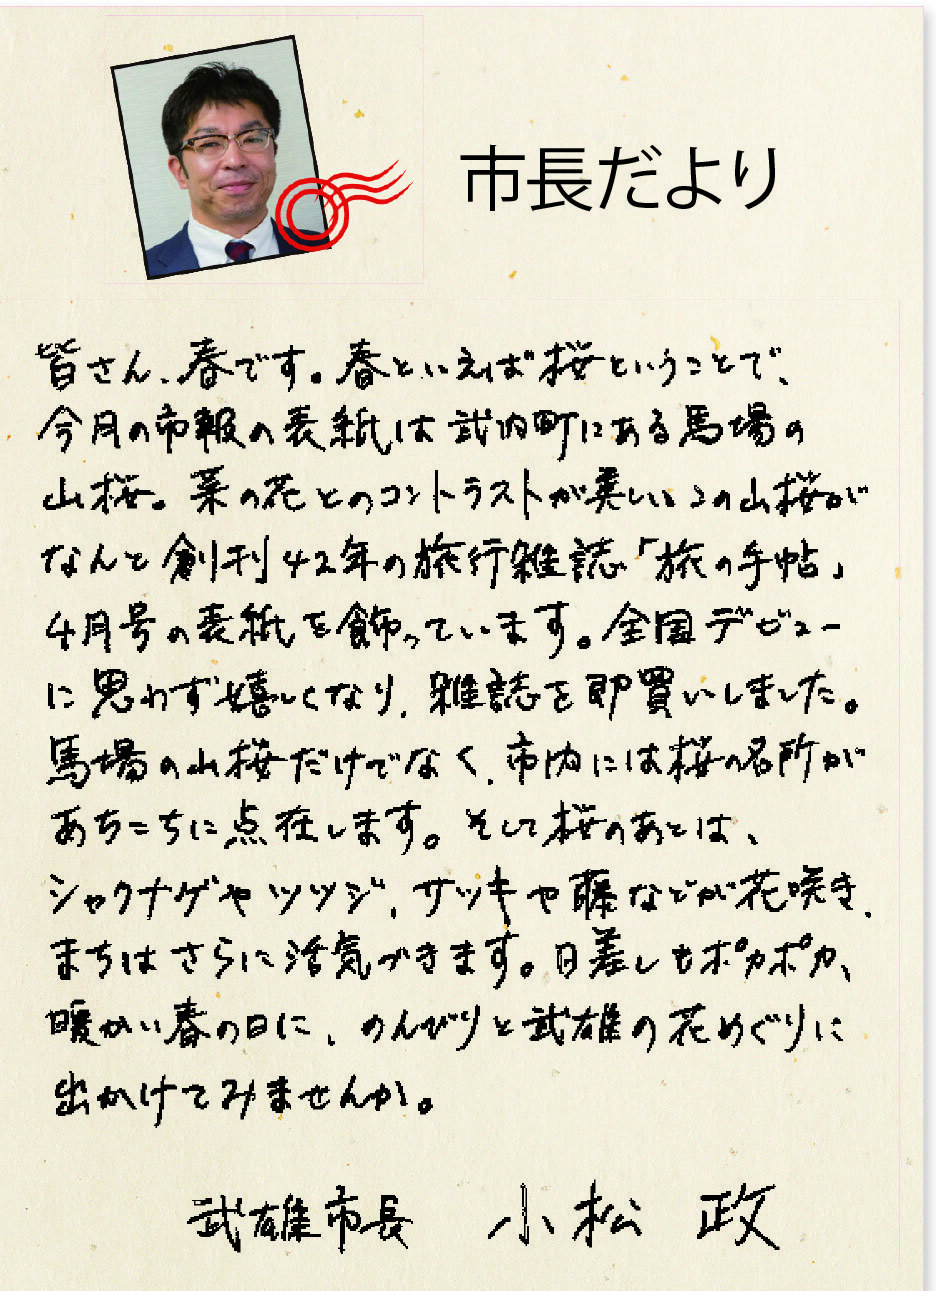 市長だより
皆さん、春です。春といえば桜ということで、
今月の市報の表紙は武内町にある馬場の
山桜。菜の花とのコントラストが美しいこの山桜が
なんと創刊42年の旅行雑誌「旅の手帖」
4月号の表紙を飾っています。全国デビュー
に思わず嬉しくなり、雑誌を即買いしました。
馬場の山桜だけでなく、市内には桜の名所が
あちこちに点在します。そして桜のあとは、
シャクナゲやツツジ、サツキや藤などが花咲き、
まちはさらに活気づきます。日差しもポカポカ、
暖かい春の日に、のんびりと武雄の花めぐりに
出かけてみませんか。
武雄市長 小松 政